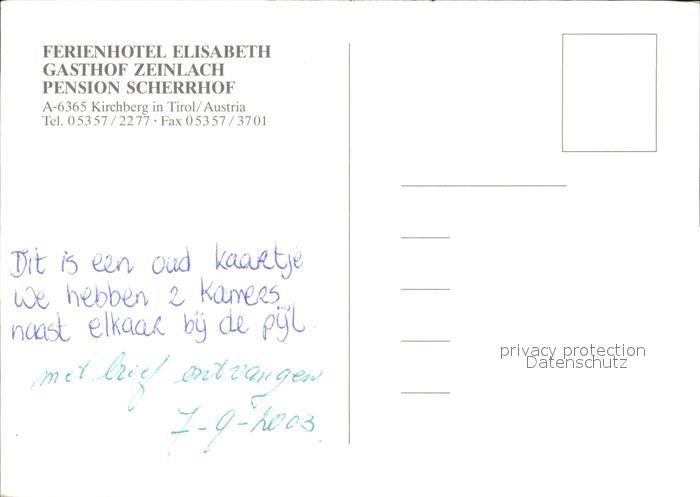 FERIENHOTEL ELISABETH
GASTHOF ZEINLACH
PENSION SCHERRHOF
A-6365 Kirchberg in Tirol/Austria
Tel. 05357/2277 · Fax 05357/3701
Dit is een oud kaartje
We hebben 2 kamers
naast elkaar bij de pijl
met brief ontvangen
7-9-2003
privacy protection
Datenschutz